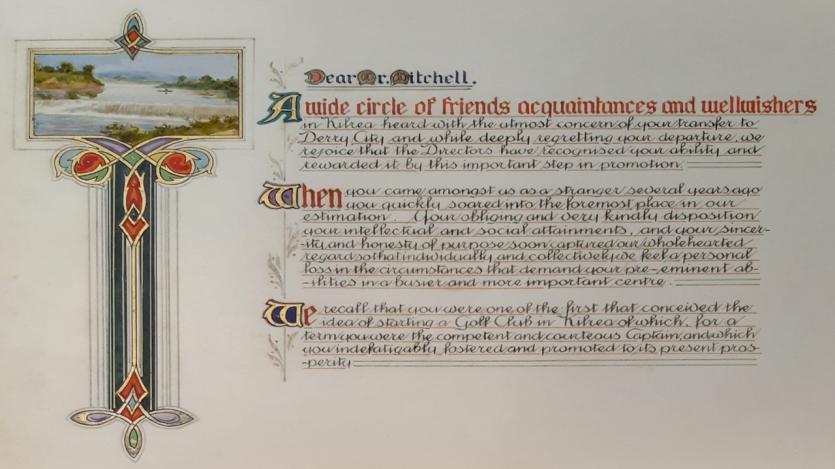 Dear Mr. Mitchell.
A wide circle of friends acquaintances and wellwishers
in Kilrea heard with the utmost concern of your transfer to
Derry City and while deeply regretting your departure, we
rejoice that the Directors have recognised your ability and
rewarded it by this important step in promotion.
When you came amongst us as a stranger several years ago
you quickly soared into the foremost place in our
estimation. Your obliging and very kindly disposition
your intellectual and social attainments, and your sincer-
-ity and honesty of purpose soon captured our wholehearted
regard so that individually and collectively we feel a personal
loss in the circumstances that demand your pre-eminent ab-
-ilities in a busier and more important centre.
We recall that you were one of the first that conceived the
idea of starting a Golf Club in Kilrea of which, for a
term you were the competent and courteous Captain, and which
you indefatigably fostered and promoted to its present pros-
-perity